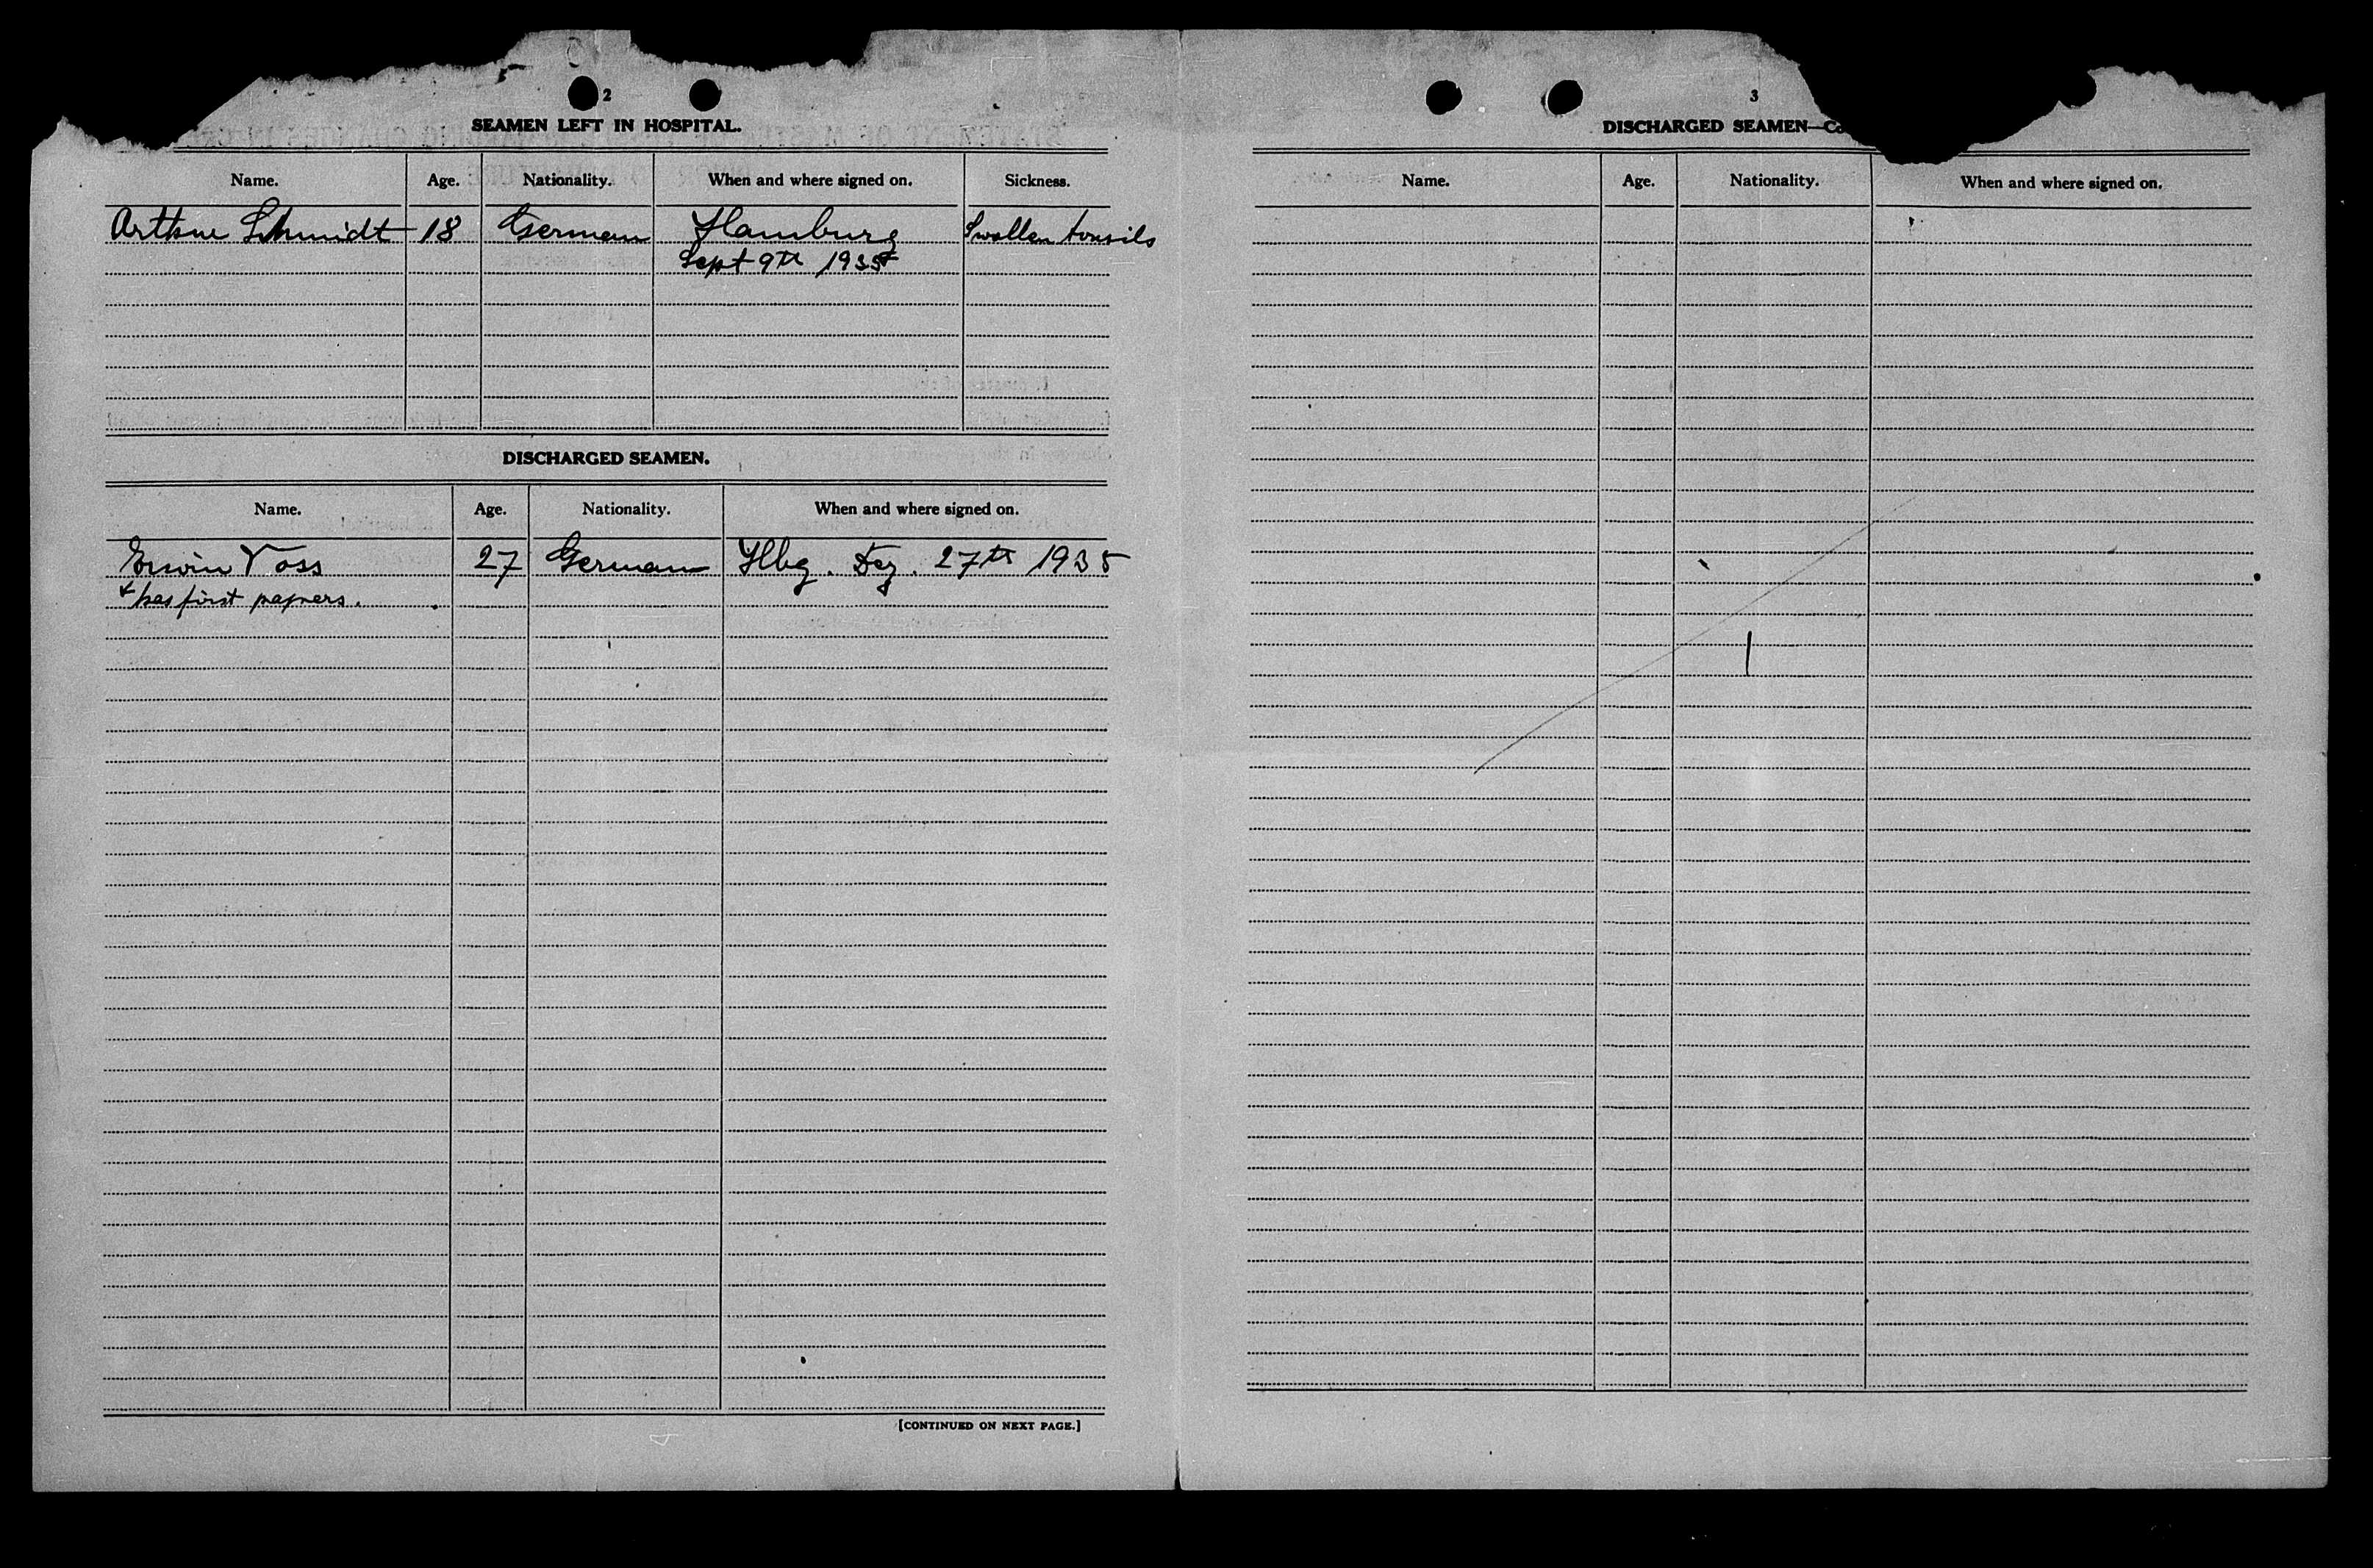 2
SEAMEN LEFT IN HOSPITAL.
Name. Age. Nationality. When and where signed on. Sickness.
Arthur Schmidt 18 German Hamburg Swollen tonsils
Sept 9th 1935
DISCHARGED SEAMEN.
Name. Age. Nationality. When and where signed on.
Erwin Voss 27 German Hbg. Dez. 27th 1935
+ has first papers.
[CONTINUED ON NEXT PAGE.]
3
DISCHARGED SEAMEN—Co
Name. Age. Nationality. When and where signed on.